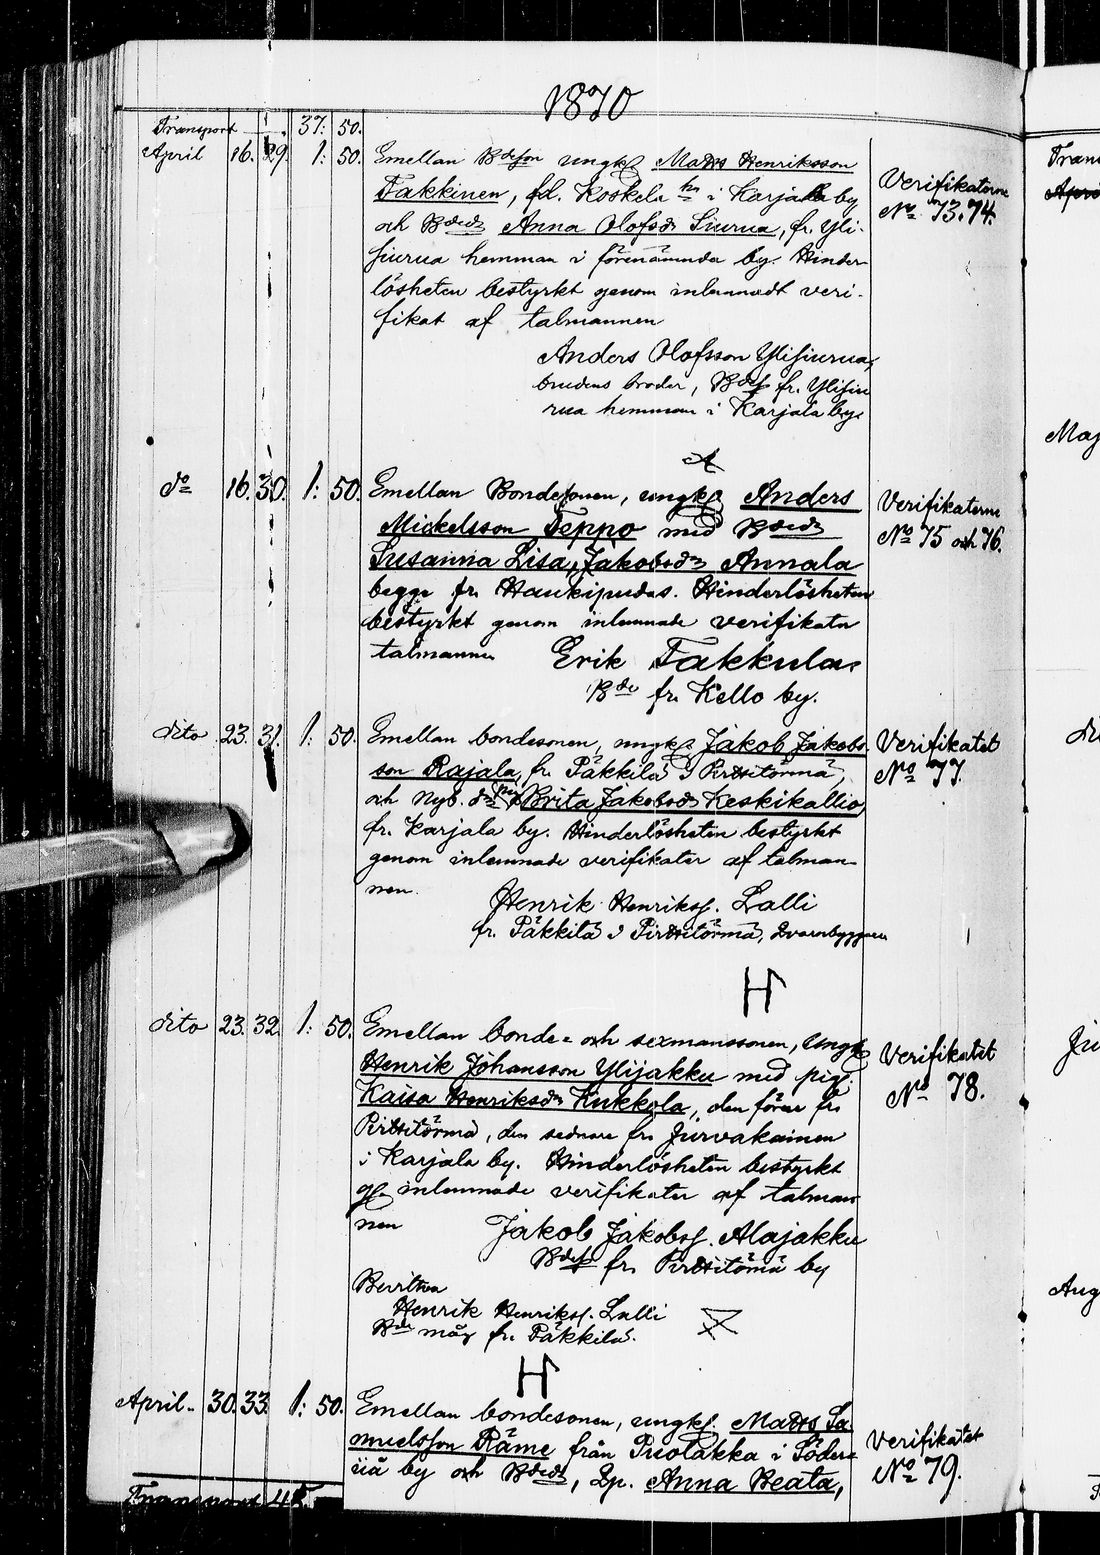 1870
Transport 37: 50.
April 16. 29. 1: 50. Emellan Bdeson ungk. Matts Henriksson
Takkinen, fd. Koskela hn i Karjala by
och Bdedr Anna Olofsdr Siurua, fr. Yli-
siurua hemman i förenämnda by. Hinder-
lösheten bestyrkt genom inlemnadt veri-
fikat af talmannen
Anders Olofsson Ylisiurua,
brudens broder, Bdes fr. Ylisiu
rua hemman i Karjala by.
Verifikaterne
No 73.74.
do 16. 30. 1: 50. Emellan Bondesonen, ungk. Anders
Mickelsson Teppo med Bdedr
Susanna Lisa, Jakobsdr Annala
begge fr. Haukipudas. Hinderlösheten
bestyrkt genom inlemnade verifikater
talmannen Erik Takkula
Bde fr. Kello by.
Verifikaterne
No 75 och 76.
dito 23. 31. 1: 50. Emellan bondesonen, ungk. Jakob Jakobs
son Rajala, fr. Päkkilä i Pirttitörmä,
och Nyb. dr pig. Brita Jakobsdr Keskikallio,
fr. Karjala by. Hinderlösheten bestyrkt
genom inlemnade verifikater af talman-
nen.
Henrik Henrikss. Lalli
fr. Päkkilä i Pirttitörmä, Qvarnbyggare
H
Verifikatet
No 77.
dito 23. 32. 1: 50. Emellan bonde- och sexmanssonen, ungk.
Henrik Johansson Ylijakku med pig.
Kaisa Henriksdr Kukkola, den förre fr.
Pirttitörmä, den sednare fr. Jurvakainen
i Karjala by. Hinderlösheten bestyrkt
gm inlemnade verifikater af talman
nen Jakob Jakobss. Alajakku
Bdes fr. Pirttitörmä by
Bevittna
Henrik Henrikss. Lalli
Bde måg fr. Päkkilä.
H
Verifikatet
No 78.
April. 30. 33. 1: 50. Emellan bondesonen, ungk. Matts Sa-
muelsson Räme från Puolakka i Söder-
iiå by och Bdedr, Qp. Anna Beata,
Verifikatet
No 79.
Transport 45